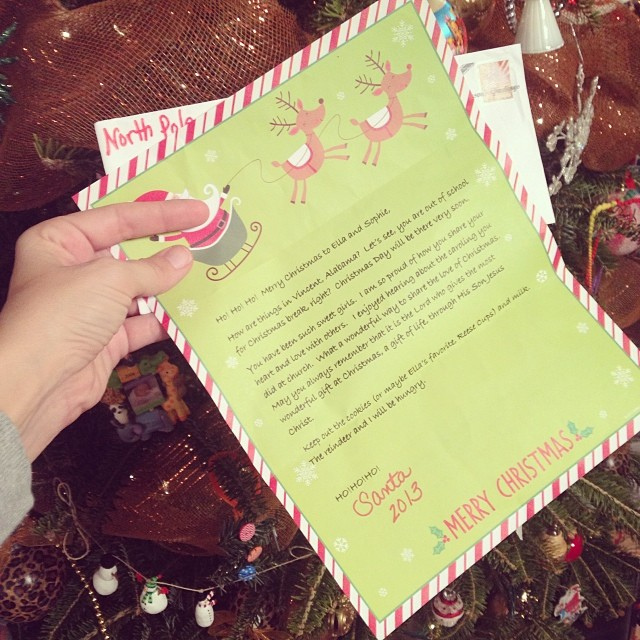 North Pole
Ho! Ho! Ho! Merry Christmas to Ella and Sophie,
How are things in Vincent, Alabama? Let's see, you are out of school
for Christmas break, right? Christmas Day will be there very soon.
You have been such sweet girls. I am so proud of how you share your
heart and love with others. I enjoyed hearing about the caroling you
did at church. What a wonderful way to share the love of Christmas.
May you always remember that it is the Lord who gives the most
wonderful gift at Christmas: a gift of life, through His Son, Jesus
Christ.
Keep out the cookies (or maybe Ella's favorite, Reese Cups) and milk.
The reindeer and I will be hungry.
HO!HO!HO!
Santa
2013
MERRY CHRISTMAS